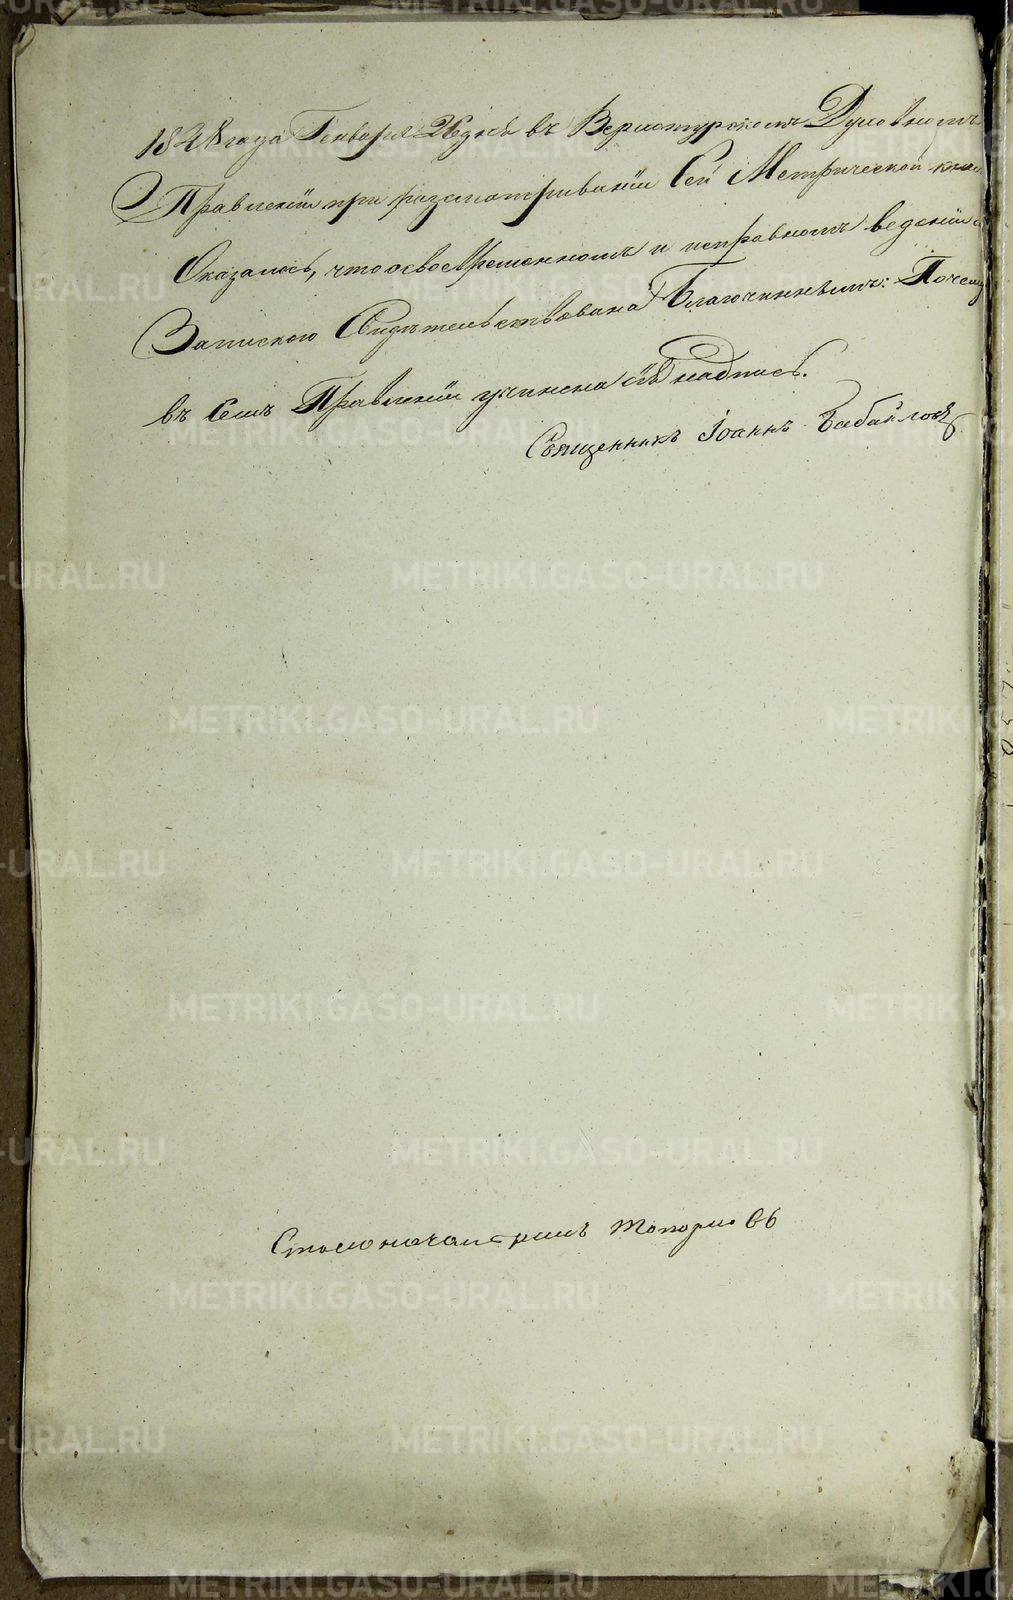 1848 года Генваря 26 дня въ Верхотурскомъ Духовномъ
Правленіи при разсматриваніи Сей Метрической
Оказалось, что о своевременномъ и исправномъ веденіи
Запискою Свидѣтельствована Благочиннымъ: Почему
въ Семъ Правленіи учинена сія надпись.
Священникъ Іоаннъ Бабайловъ
Столоначальникъ Топорковъ
METRIKI.GASO-URAL.RU